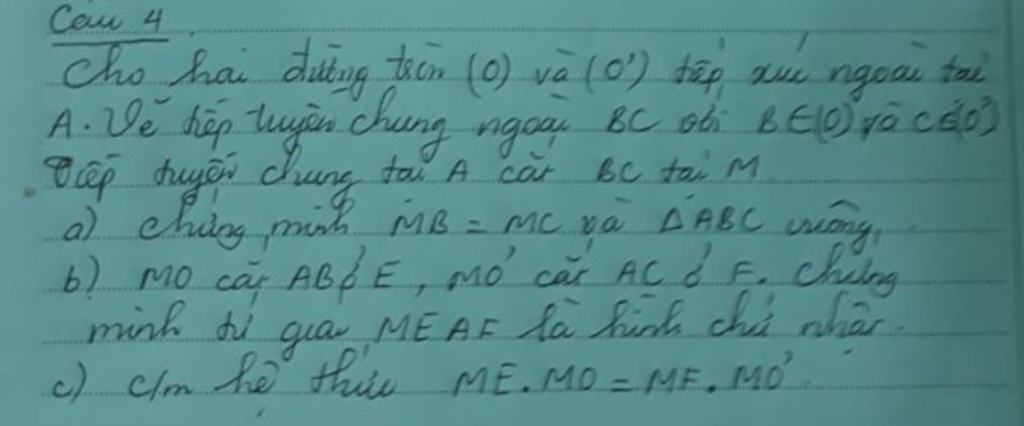 Câu 4
Cho hai đường tròn (O) và (O') tiếp xúc ngoài tại
A. Vẽ tiếp tuyến chung ngoài BC với B∈(O) và C∈(O')
Tiếp tuyến chung tại A cắt BC tại M
a) Chứng minh MB = MC và ΔABC vuông.
b) MO cắt AB ở E, MO' cắt AC ở F. Chứng
minh tứ giác MEAF là hình chữ nhật.
c) c/m hệ thức ME.MO = MF.MO'